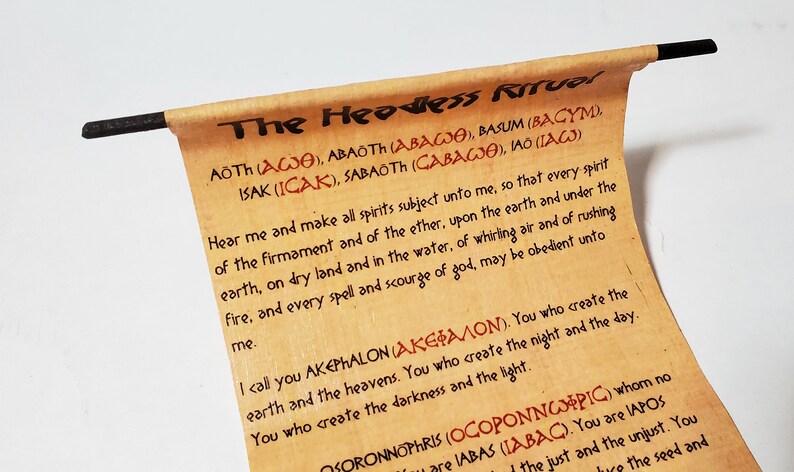 The Headless Ritual
AōTh (ΑωΘ), ABAōTh (ΑΒΑωΘ), BASUM (ΒΑϹΥΜ),
ISAK (ΙϹΑΚ), SABAōTh (ϹΑΒΑωΘ), IAō (ΙΑω)
Hear me and make all spirits subject unto me, so that every spirit
of the firmament and of the ether, upon the earth and under the
earth, on dry land and in the water, of whirling air and of rushing
fire, and every spell and scourge of god, may be obedient unto
me.
I call you AKEPhALON (ΑΚΕΦΑΛΟΝ). You who create the
earth and the heavens. You who create the night and the day.
You who create the darkness and the light.
OSORONNōPHRIS (ΟϹΟΡΟΝΝωΦΡΙϹ) whom no
You are IABAS (ΙΑΒΑϹ). You are IAPOS
the just and the unjust. You
the seed and